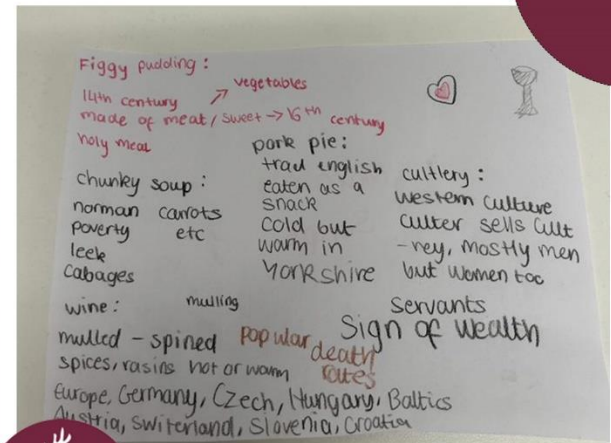 Figgy pudding:
vegetables
14th century
made of meat/sweet → 16th century
holy meal
chunky soup:
norman carrots
poverty etc
leek
cabages
pork pie:
trad english
eaten as a
snack
cold but
warm in
Yorkshire
cultlery:
western culture
culter sells cutl
-rey, mostly men
but women too
servants
Sign of wealth
wine:
mulling
mulled - spined
spices, rasins hot or warm
popular
death
rates
Europe, Germany, Czech, Hungary, Baltics
Austria, Switerland, Slovenia, Croatia